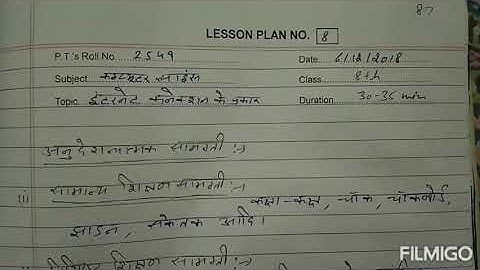 87
LESSON PLAN NO. 8
P.T.'s Roll No. 2549 Date 6/12/2018
Subject कम्प्यूटर साइंस Class 8th
Topic इंटरनेट कनेक्शन के प्रकार Duration 30-35 min
अनुदेशनात्मक सामग्री :-
(i) सामान्य शिक्षण सामग्री :-
कक्षा-कक्ष, चॉक, चॉकबोर्ड,
झाडन, संकेतक आदि।
शिक्षण सामग्री :-
FILMIGO